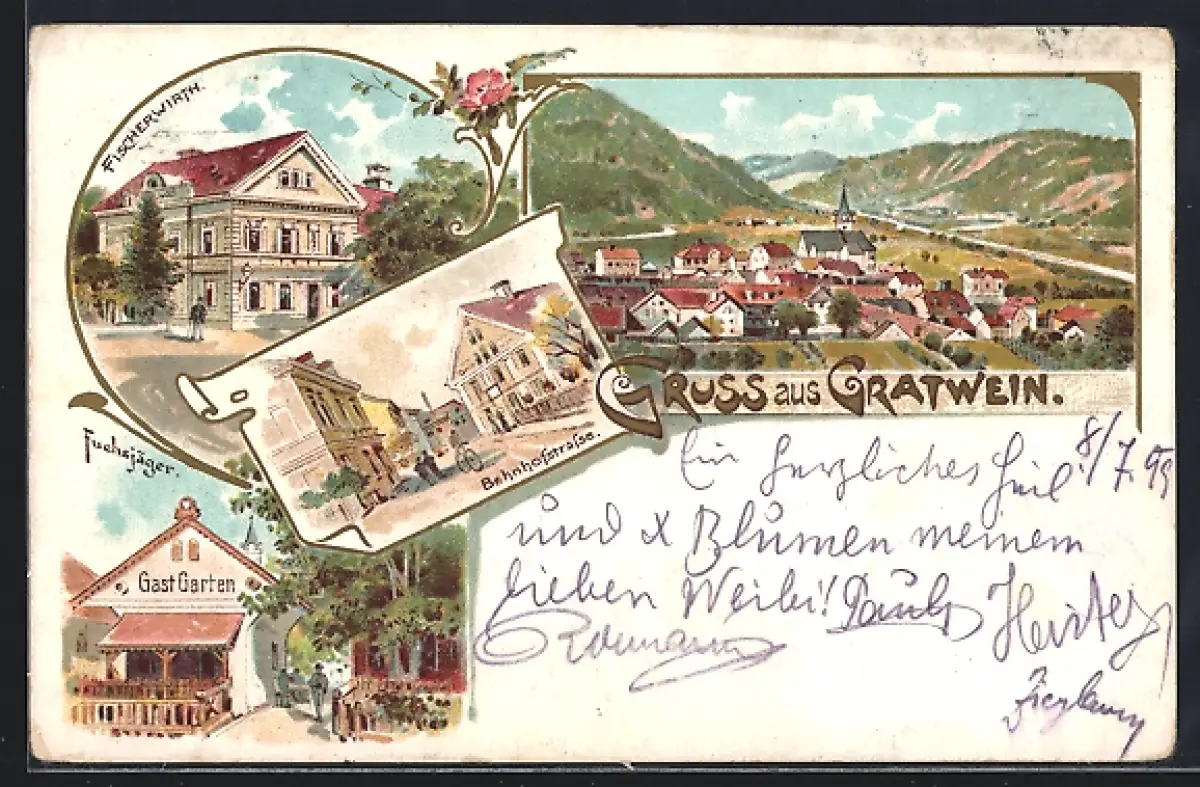 FISCHERWIRTH.
GRUSS aus GRATWEIN.
Bahnhofstraße.
Fuchsjäger.
Gast Garten
8/7 99
Ein herzliches Heil
und x Blumen meinem
lieben Weibi! Pauly